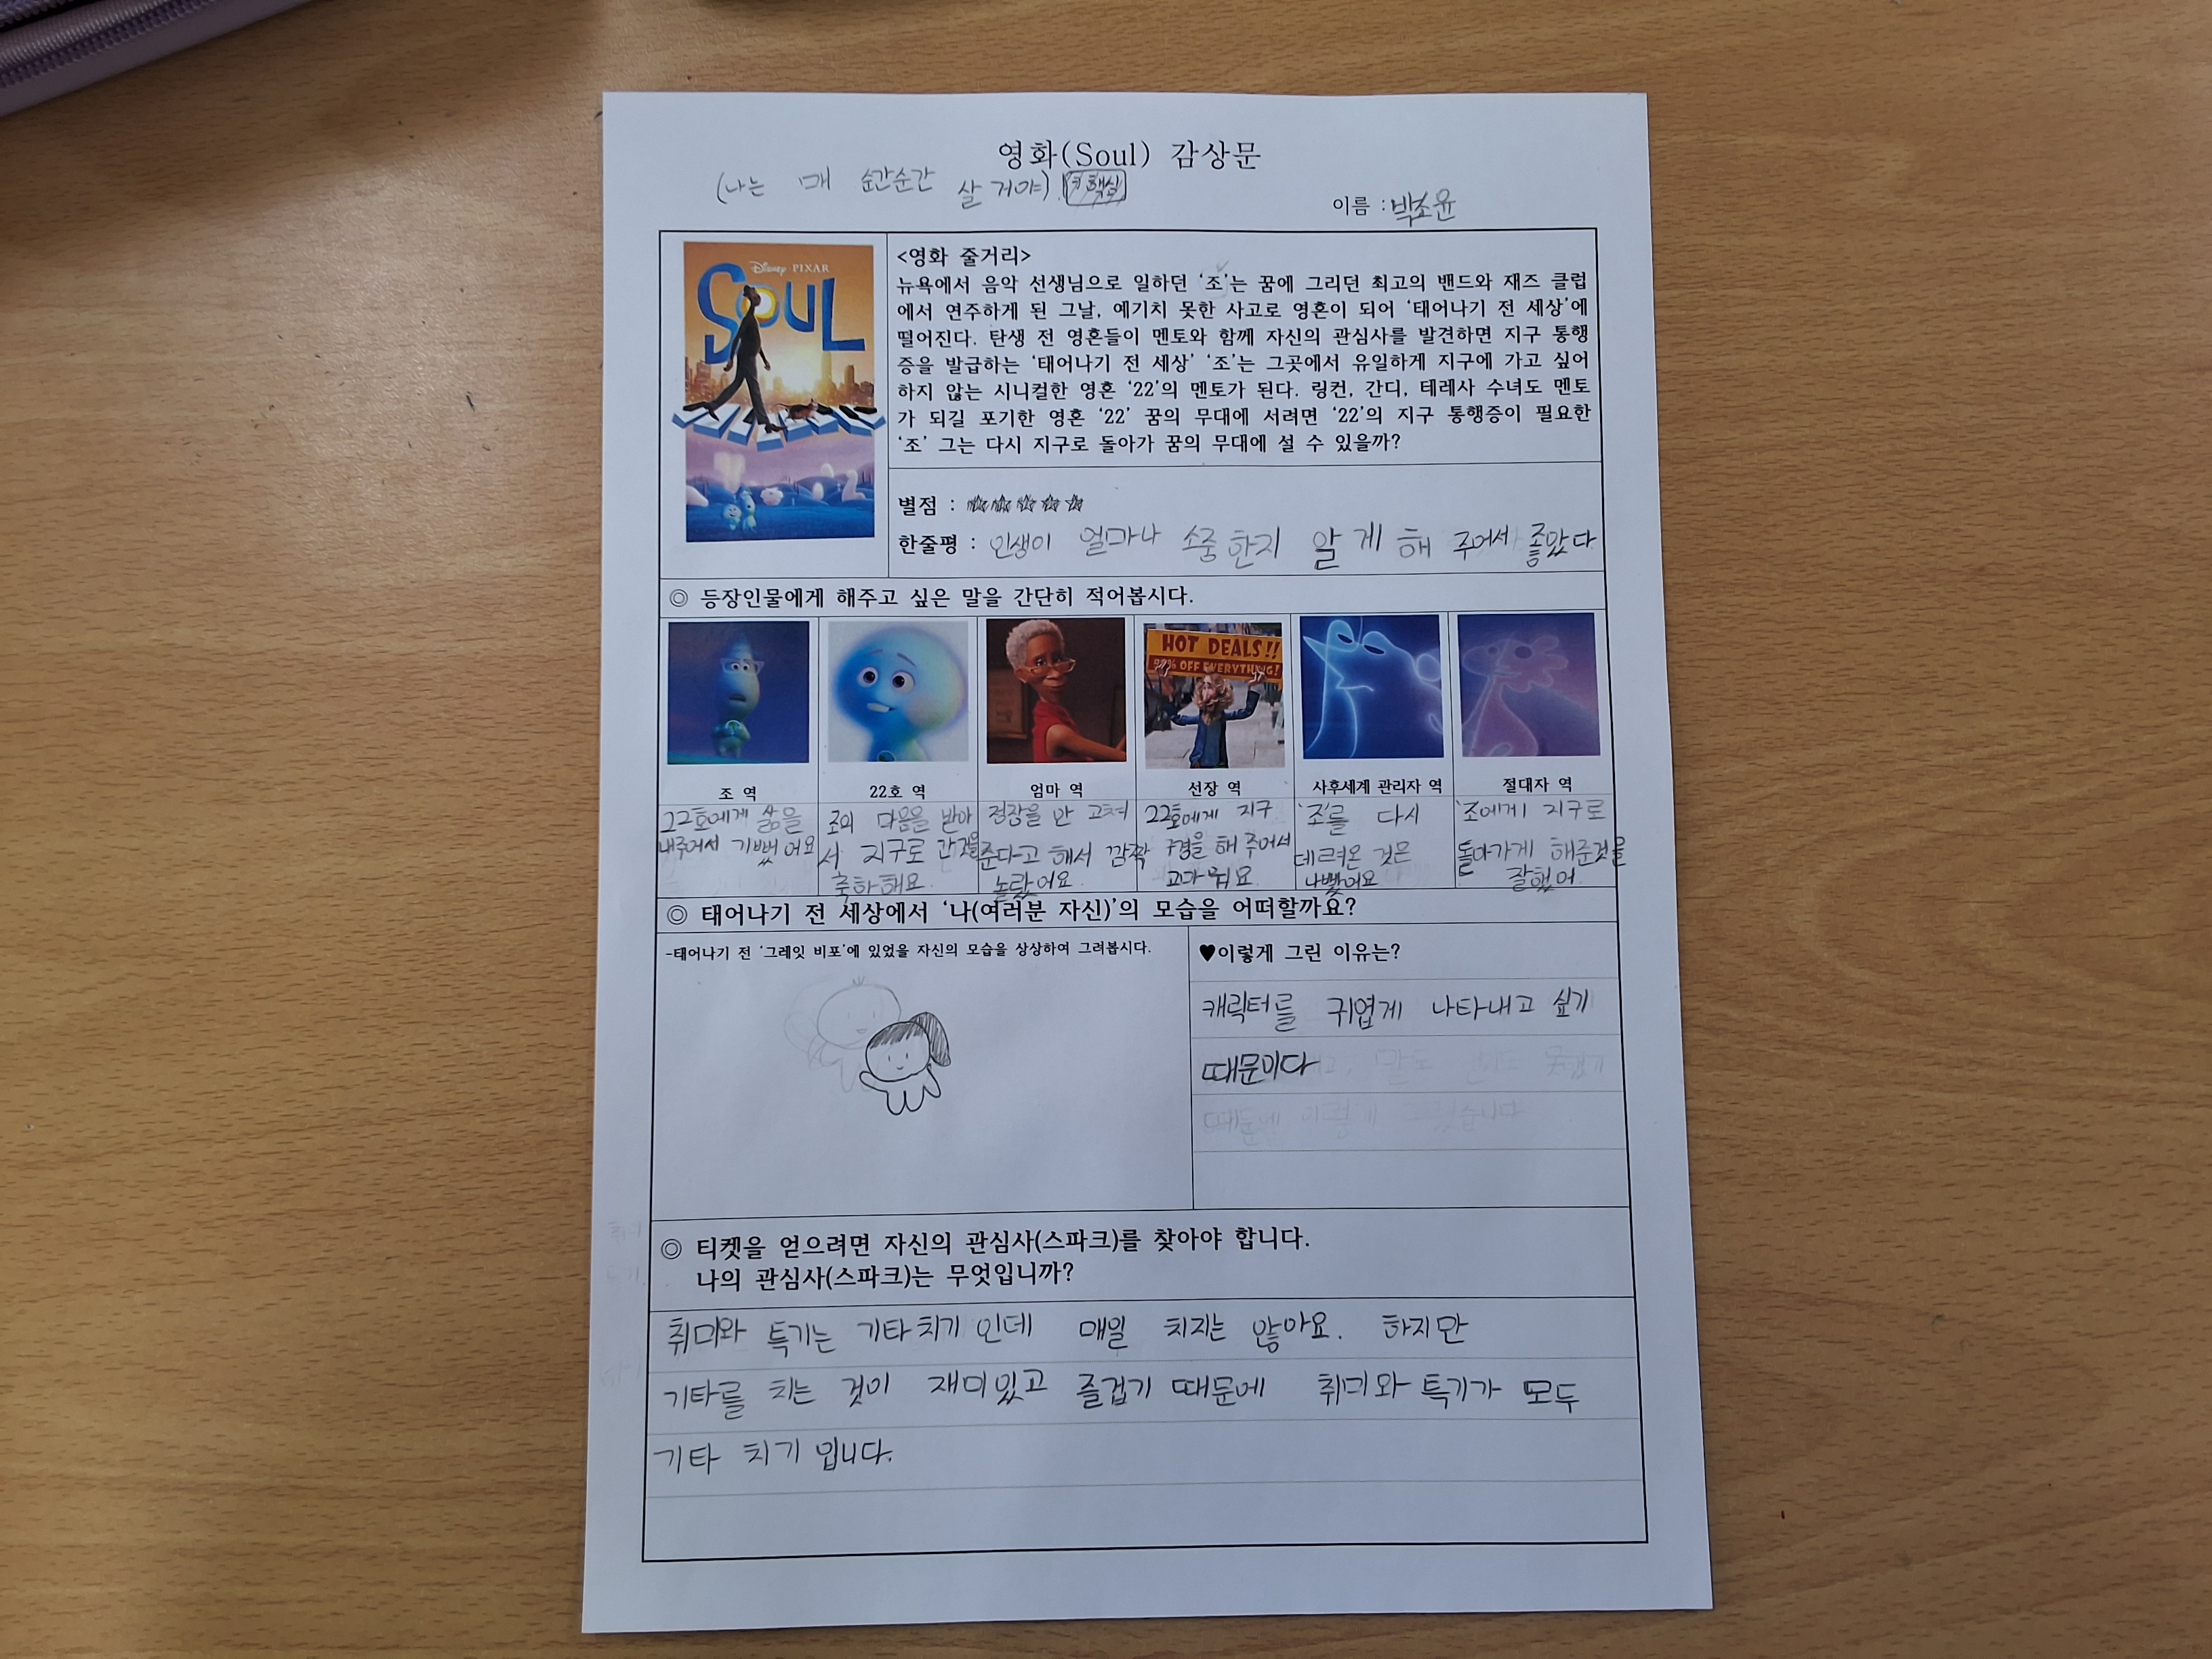 영화(Soul) 감상문
(나는 매 순간순간 살 거야).
이름 : 박소윤
Disney PIXAR
SOUL
<영화 줄거리>
뉴욕에서 음악 선생님으로 일하던 ‘조’는 꿈에 그리던 최고의 밴드와 재즈 클럽
에서 연주하게 된 그날, 예기치 못한 사고로 영혼이 되어 ‘태어나기 전 세상’에
떨어진다. 탄생 전 영혼들이 멘토와 함께 자신의 관심사를 발견하면 지구 통행
증을 발급하는 ‘태어나기 전 세상’ ‘조’는 그곳에서 유일하게 지구에 가고 싶어
하지 않는 시니컬한 영혼 ‘22’의 멘토가 된다. 링컨, 간디, 테레사 수녀도 멘토
가 되길 포기한 영혼 ‘22’ 꿈의 무대에 서려면 ‘22’의 지구 통행증이 필요한
‘조’ 그는 다시 지구로 돌아가 꿈의 무대에 설 수 있을까?
별점 : ☆☆☆☆☆
한줄평 : 인생이 얼마나 소중한지 알게 해 주어서 좋았다
◎ 등장인물에게 해주고 싶은 말을 간단히 적어봅시다.
HOT DEALS!!
OFF EVERYTHING!
조 역
22호에게 삶을
내주어서 기뻤어요
22호 역
조의 마음을 받아
서 지구로 간것을
축하해요.
엄마 역
정장을 안 고쳐
준다고 해서 깜짝
놀랐어요.
선장 역
22호에게 지구
구경을 해 주어서
고마워요
사후세계 관리자 역
‘조’를 다시
데려온 것은
나빴어요
절대자 역
‘조에게 지구로
돌아가게 해준것을
잘했어
◎ 태어나기 전 세상에서 ‘나(여러분 자신)’의 모습을 어떠할까요?
-태어나기 전 ‘그레잇 비포’에 있었을 자신의 모습을 상상하여 그려봅시다.
♥이렇게 그린 이유는?
캐릭터를 귀엽게 나타내고 싶기
때문이다
◎ 티켓을 얻으려면 자신의 관심사(스파크)를 찾아야 합니다.
나의 관심사(스파크)는 무엇입니까?
취미와 특기는 기타치기 인데 매일 치지는 않아요. 하지만
기타를 치는 것이 재미있고 즐겁기 때문에 취미와 특기가 모두
기타 치기 입니다.